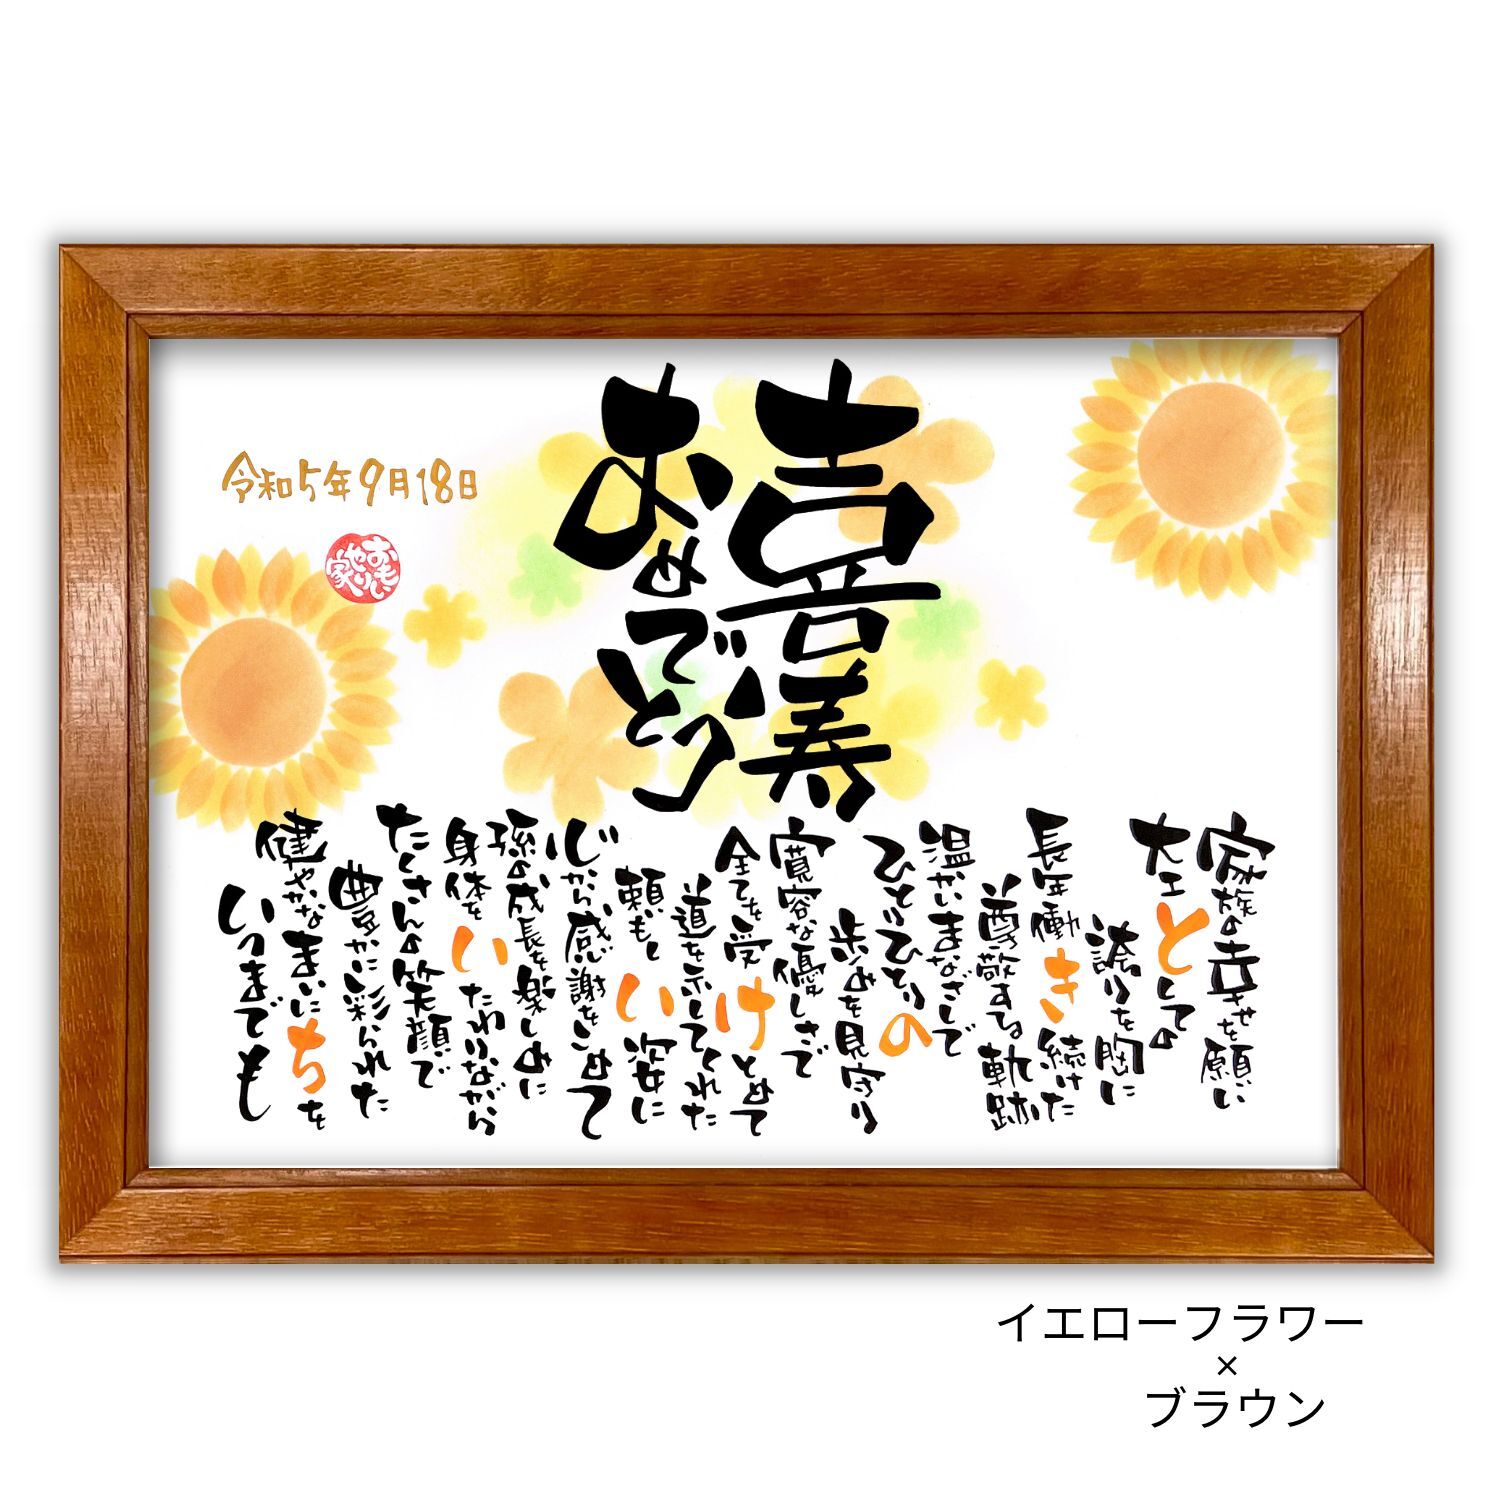 喜寿
おめでとう
令和5年9月18日
おもいやり家
家族の幸せを願い
大工としての
誇りを胸に
長年働き続けた
尊敬する軌跡
温かいまなざしで
ひとりひとりの
歩みを見守り
寛容な優しさで
全てを受けとめて
道を示してくれた
頼もしい姿に
心から感謝をこめて
孫の成長を楽しみに
身体をいたわりながら
たくさんの笑顔で
豊かに彩られた
健やかなまいにちを
いつまでも
イエローフラワー
×
ブラウン